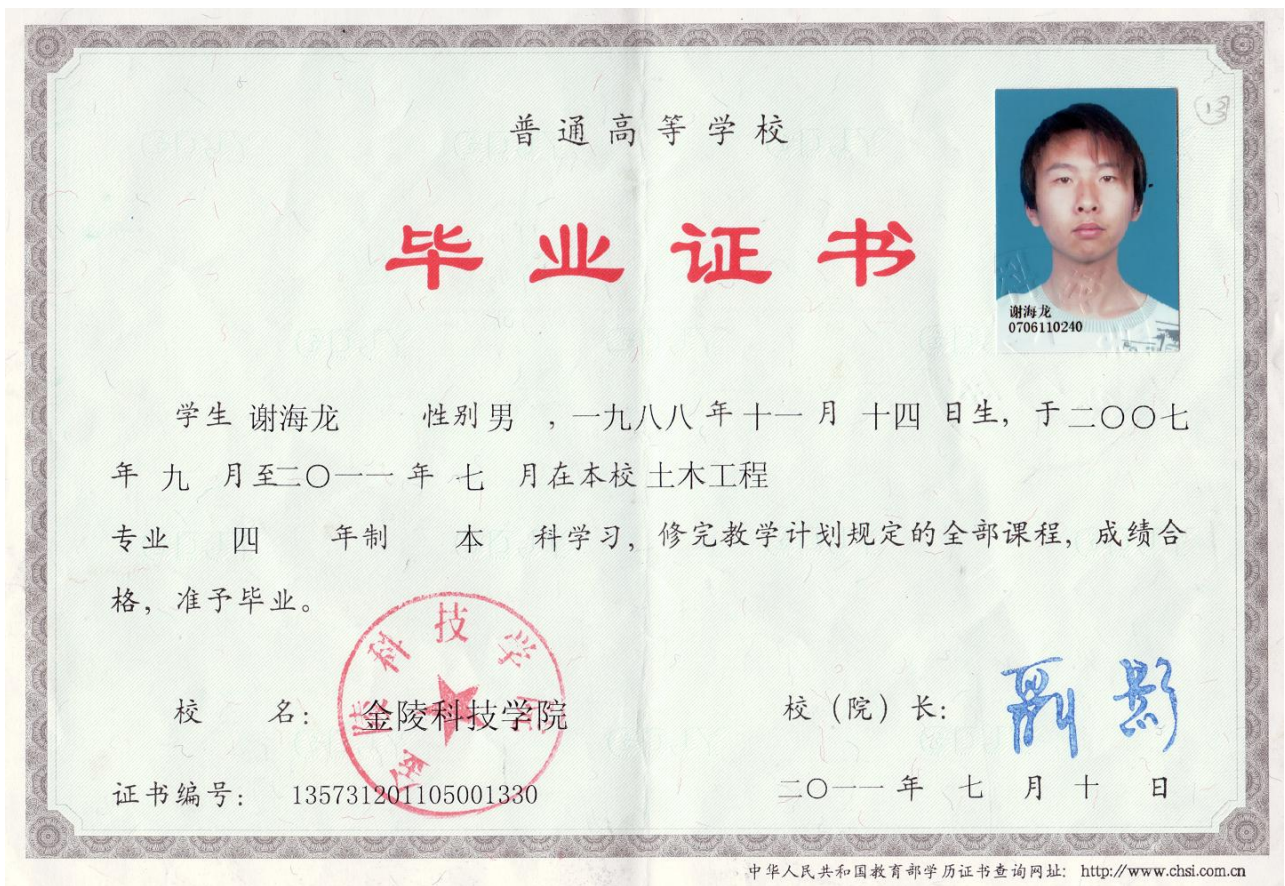 普通高等学校
13
毕业证书
谢海龙
0706110240
学生 谢海龙 性别 男 ,一九八八 年 十一 月 十四 日生, 于 二〇〇七
年 九 月至 二〇一一 年 七 月在本校 土木工程
专业 四 年制 本 科学习, 修完教学计划规定的全部课程, 成绩合
格, 准予毕业。
金陵科技学院
校 名: 金陵科技学院
校(院)长:
证书编号: 135731201105001330
二〇一一 年 七 月 十 日
中华人民共和国教育部学历证书查询网址: http://www.chsi.com.cn